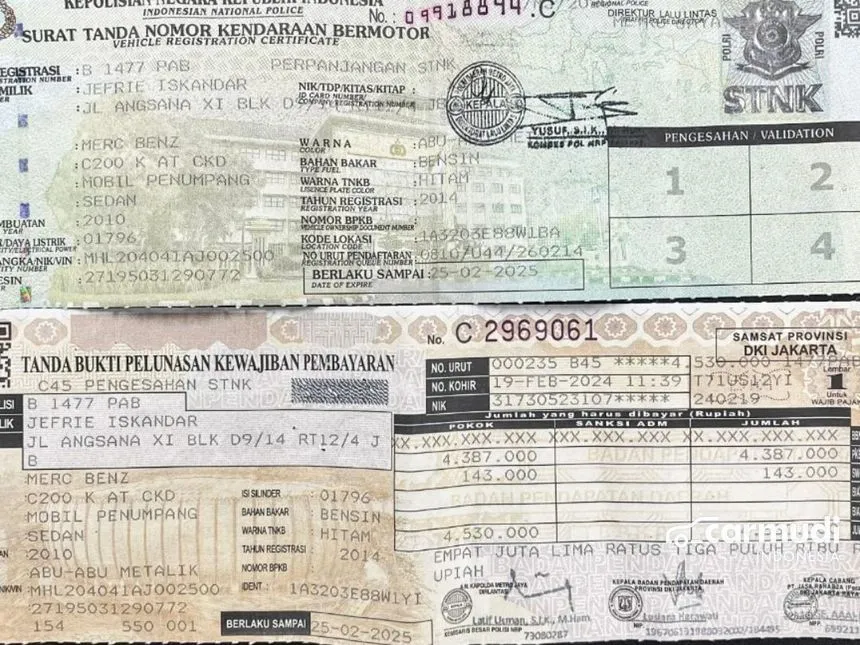 KEPOLISIAN NEGARA REPUBLIK INDONESIA
INDONESIAN NATIONAL POLICE
No.: 09918894 .C
SURAT TANDA NOMOR KENDARAAN BERMOTOR
VEHICLE REGISTRATION CERTIFICATE
REGIONAL POLICE
DIREKTUR LALU LINTAS
TRAFFIC POLICE DIRECTOR
METRO JAYA
POLRI
POLRI
STNK
EGISTRASI : B 1477 PAB PERPANJANGAN STNK
STRATION NUMBER
MILIK : JEFRIE ISKANDAR NIK/TDP/KITAS/KITAP :
ID CARD NUMBER/
COMPANY REGISTRATION NUMBER
: JL ANGSANA XI BLK D9/
KEPALA
YUSUF, S.I.K.,
KOMBES POL NRP
PENGESAHAN / VALIDATION
1 2
3 4
: MERC BENZ WARNA : ABU-
COLOR
: C200 K AT CKD BAHAN BAKAR : BENSIN
TYPE FUEL
: MOBIL PENUMPANG WARNA TNKB : HITAM
LISENCE PLATE COLOR
: SEDAN TAHUN REGISTRASI : 2014
REGISTRATION YEAR
MBUATAN : 2010 NOMOR BPKB :
YEAR VEHICLE OWNERSHIP DOCUMENT NUMBER
/DAYA LISTRIK : 01796 KODE LOKASI : 1A3203E88W1BA
LOCATION CODE
ANGKA/NIK/VIN : MHL204041AJ002500 NO URUT PENDAFTARAN : 0810/044/260214
REGISTRATION QUEUE NUMBER
ESIN : 27195031290772 BERLAKU SAMPAI : 25-02-2025
DATE OF EXPIRE
No. C 2969061
SAMSAT PROVINSI
DKI JAKARTA
TANDA BUKTI PELUNASAN KEWAJIBAN PEMBAYARAN
C45 PENGESAHAN STNK
NO. URUT 000235 B45 *****4.530.000
NO. KOHIR 19-FEB-2024 11:39 T71US12YI
NIK 31730523107***** 240219
Lembar
1
Untuk
WAJIB PAJAK
LISI B 1477 PAB
LIK JEFRIE ISKANDAR
JL ANGSANA XI BLK D9/14 RT12/4 J
B
Jumlah yang harus dibayar (Rupiah)
POKOK SANKSI ADM JUMLAH
XX.XXX.XXX.XXX XX.XXX.XXX.XXX XX.XXX.XXX.XXX
4.387.000 4.387.000
143.000 143.000
4.530.000
MERC BENZ
C200 K AT CKD ISI SILINDER : 01796
MOBIL PENUMPANG BAHAN BAKAR : BENSIN
SEDAN WARNA TNKB : HITAM
2010 TAHUN REGISTRASI : 2014
ABU-ABU METALIK NOMOR BPKB :
MHL204041AJ002500 IDENT. : 1A3203E88W1YI
27195031290772
154 550 001 BERLAKU SAMPAI 25-02-2025
carmudi
EMPAT JUTA LIMA RATUS TIGA PULUH RIBU R
UPIAH
A.N. KAPOLDA METRO JAYA
DIRLANTAS
Latif Usman, S.I.K., M.Ham.
KOMISARIS BESAR POLISI NRP
73080287
KEPALA BADAN PENDAPATAN DAERAH
PROVINSI DKI JAKARTA
Lusiana Herawati
KEPALA CABANG
PT. JASA RAHARJA